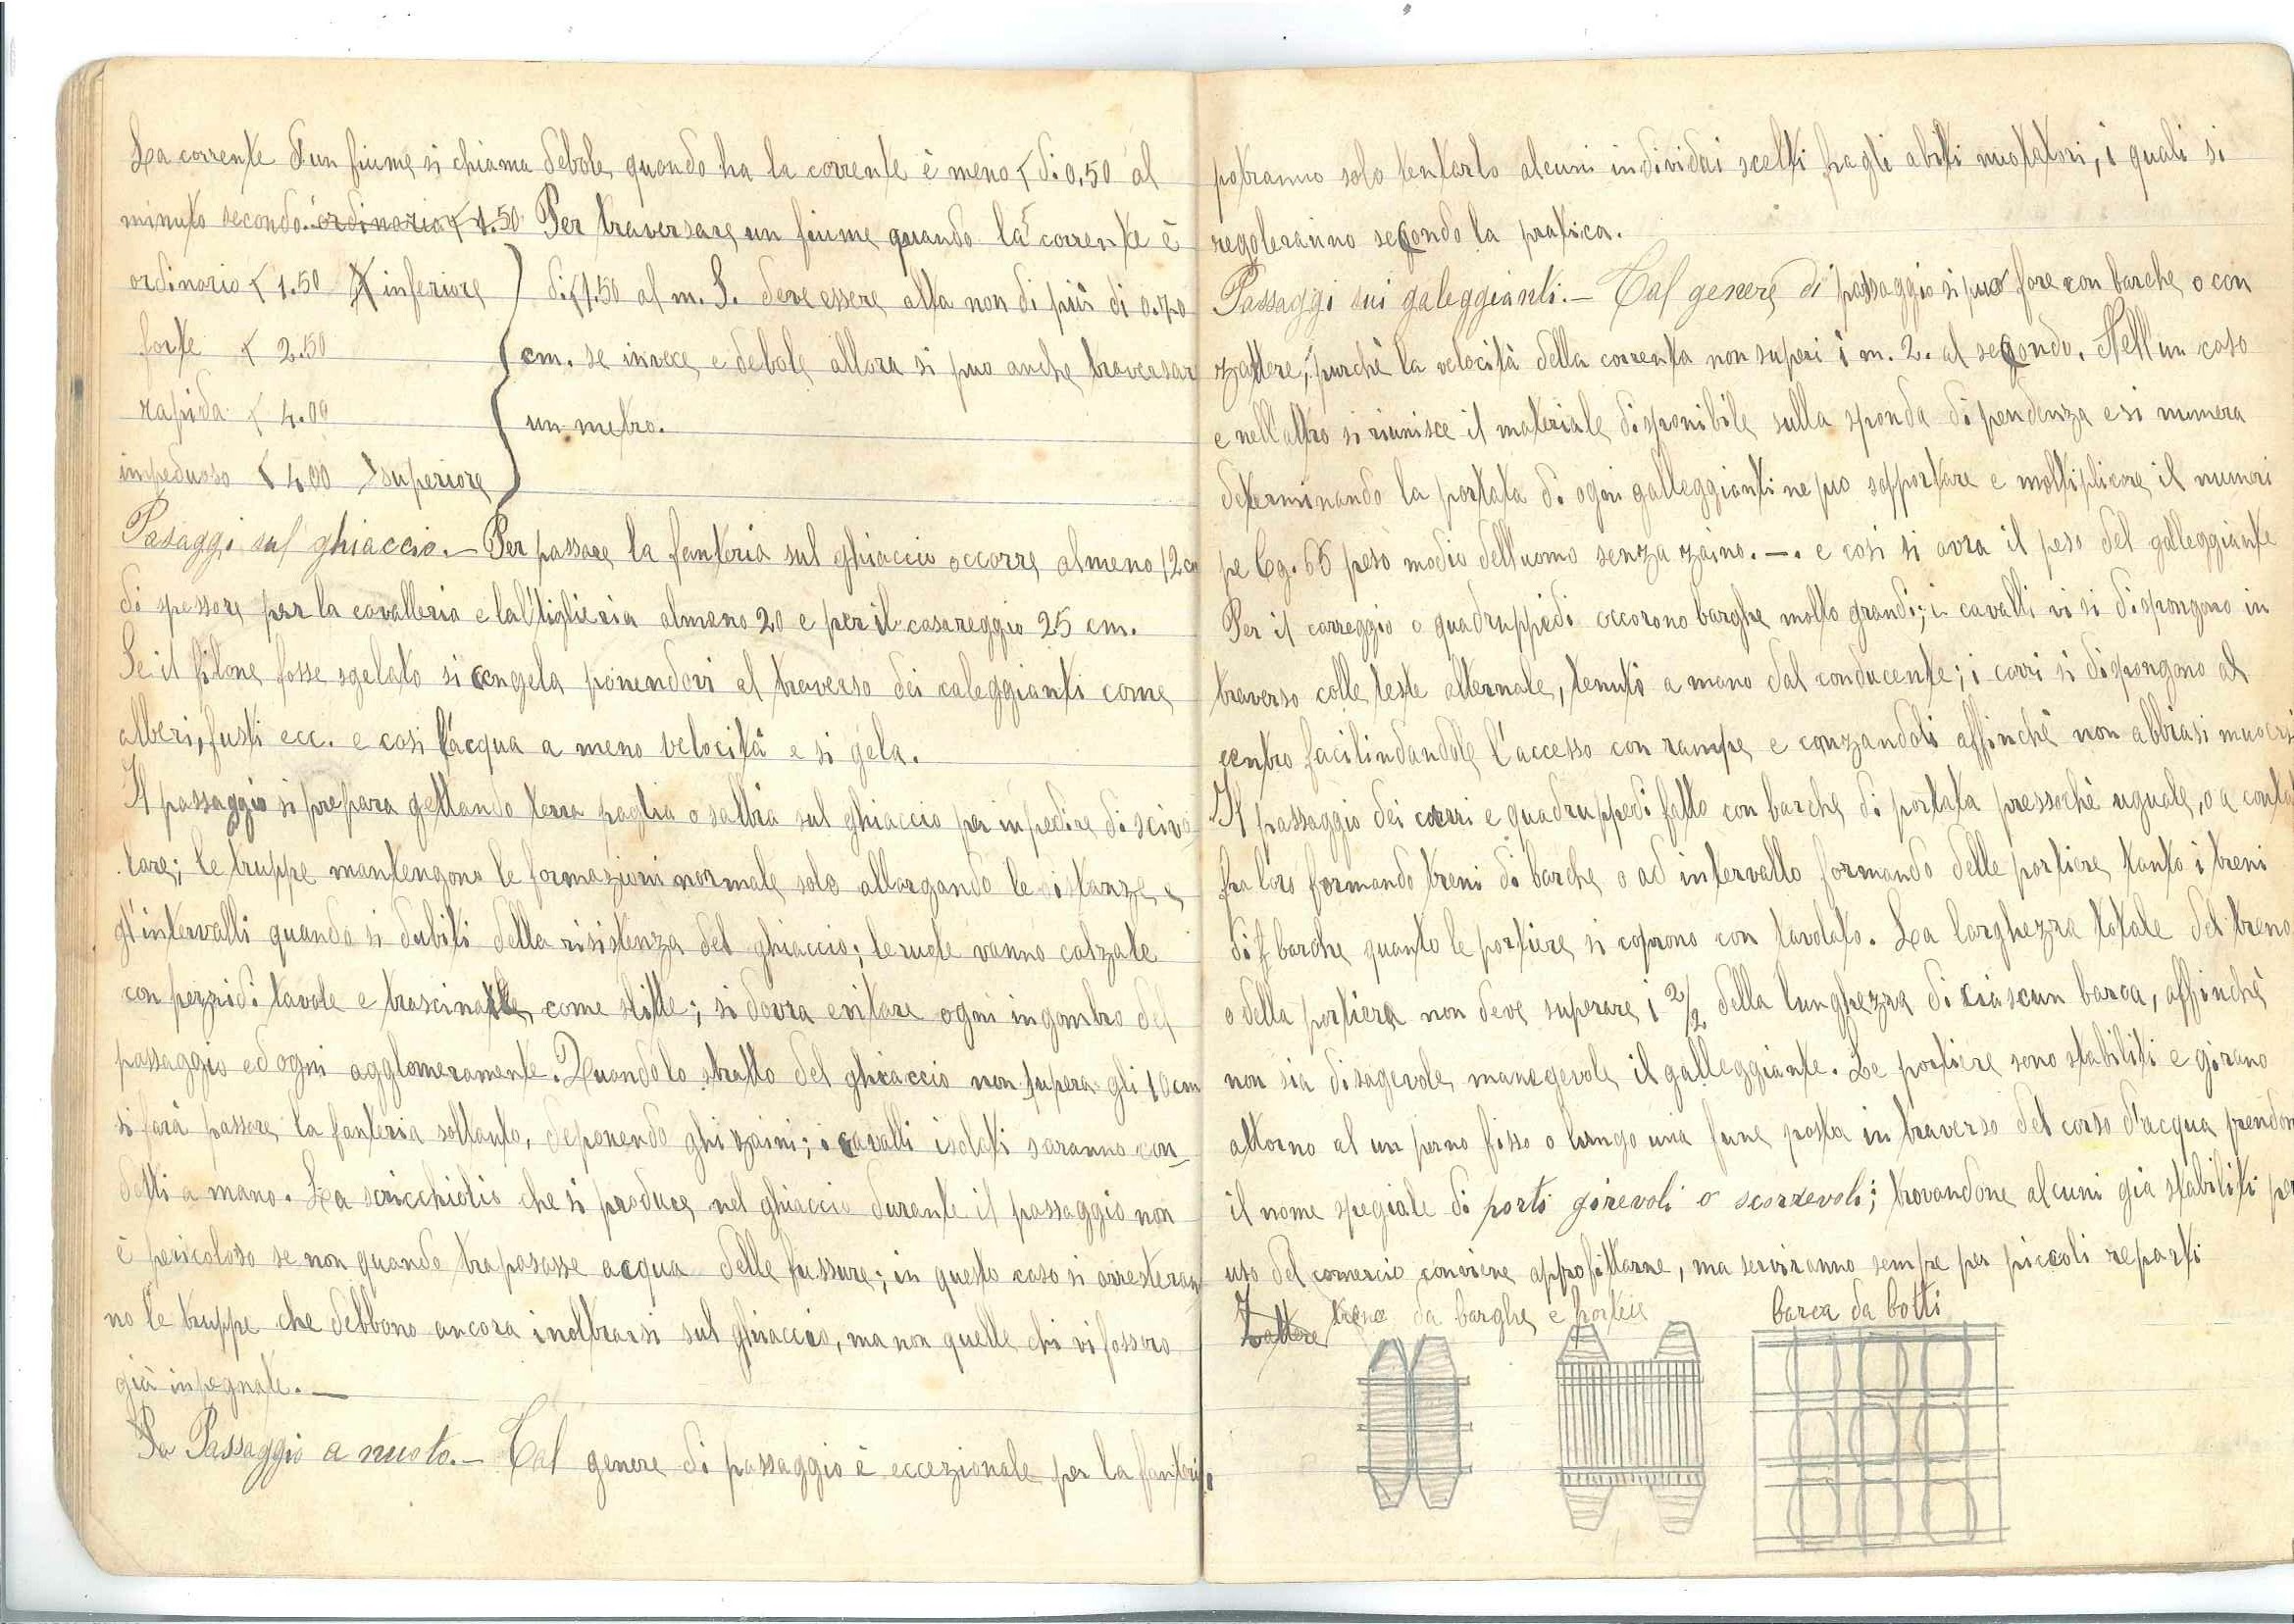 La corrente d'un fiume si chiama debole quando ha la corrente è meno < di 0,50 al
minuto secondo. ordinaria < 1.50 Per traversare un fiume quando la corrente è
ordinario < 1.50 inferiore di < 1.50 al m. S. deve essere alta non di più di 0.70
forte < 2.50 cm. se invece e debole allora si puo anche traversar
rapida < 4.00 un metro.
impeduoso < 4.00 > superiore
Pasaggi sul ghiaccio. — Per passare la fanteria sul ghiaccio occorre almeno 12 cm
di spessore per la cavalleria e lal'tiglieria almeno 20 e per il casareggio 25 cm.
Se il filone fosse sgelato si congela ponendovi al traverso dei caleggianti come
alberi, fusti ecc. e cosi l'acqua a meno velocità e si gela.
Il passaggio si prepara gettando terra paglia o sabbia sul ghiaccio per inpedire di scivo
lare; le truppe mantengono le formazioni normale solo allargando le distanze e
gl'intervalli quando si dubiti della risistenza del ghiaccio; le ruole vanno calzate
con pezzi di tavole e trascinatle come slitte; si dovra evitare ogni ingombro del
passaggio ed ogni agglomeramente. Quando lo stratto del ghiaccio non supera gli 10 cm
si farà passare la fanteria soltanto, deponendo ghi zaini; i cavalli isolati saranno con-
dotti a mano. La scricchiolio che si produce nel ghiaccio durante il passaggio non
è pericoloso se non quando trapasasse acqua delle fussure; in questo caso si arresteran
no le truppe che debbono ancora inoltrarsi sul ghiaccio, ma non quelle chi vi fossero
già inpegnate. —
Passaggio a nuoto. — Tal genere di passaggio è eccezionale per la fanteria
potranno solo tentarlo alcuni individui scelti fra gli abili nuotatori, i quali si
regoleranno secondo la pratica.
Passaggi sui galeggianti. — Tal genere di passaggio si può fare con barche o con
zattere, purchè la velocità della corrente non superi i m. 2. al secondo. Nell'un caso
e nell'altro si riunisce il materiale disponibile sulla sponda di pendenza e si numera
determinando la portata di ogni galleggianti ne puo sopportare e moltiplicare il numeri
pe Cg. 65 peso modio dell'uomo senza zaino. —. e cosi si avra il peso del galleggiante
Per il carreggio o quadruppedi occorono barghe molto grandi; i cavalli vi si dispongono in
traverso colle teste alternate, tenuti a mano dal conducente; i carri si dispongono al
centro facilindandole l'accesso con rampe e conzandoli affinchè non abbiasi muoversi
Il passaggio dei carri e quadruppedi fatto con barche di portata pressochè uguale, o a conta
fra loro formando treni di barche o ad intervallo formando delle portiere tanto i treni
di barche quanto le portiere si coprono con tavolato. La larghezza totale del treno
o della portiera non deve superare i 2/2 della lunghezza di ciascun barca, affinchè
non sia disagevole manegevole il galleggiante. Le portiere sono stabiliti e girano
attorno al un perno fisso o lungo una fune posta in traverso del corso d'acqua prendon
il nome spegiale di porti girevoli o scorrevoli; trovandone alcuni gia stabiliti per
uso del comercio conviene approfittarne, ma serviranno sempre per piccoli reparti
Zattere treno da barghe e portiere barca da botti